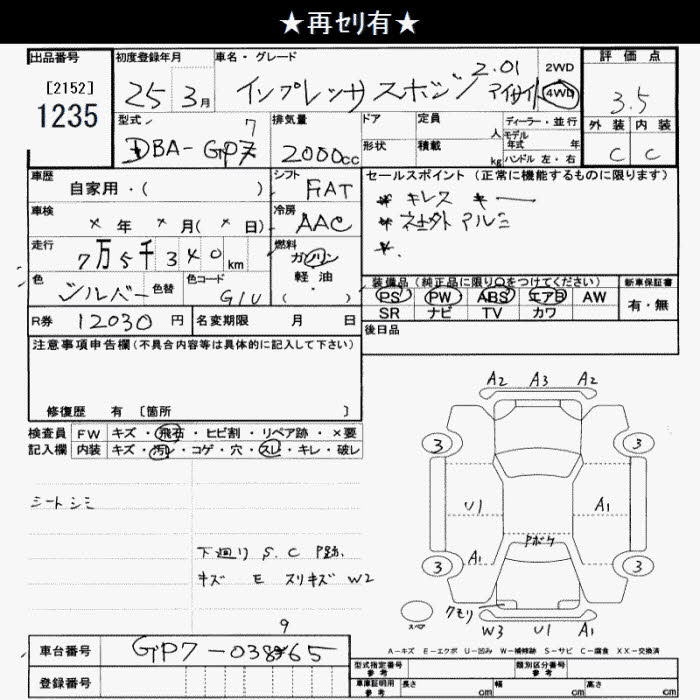 ★再セリ有★
出品番号 初度登録年月 車名・グレード 評価点
[2152]
1235
25 3月 インプレッサスポーツ 2.0i アイサイト 2WD 4WD 3.5
型式 排気量 ドア 定員 人 ディーラー・並行 外装 内装
DBA-GP7 7 2000cc 形状 積載 kg モデル年式 年 ハンドル 左・右 C C
車歴 シフト セールスポイント (正常に機能するものに限ります)
自家用・( ) FAT * キレス *
車検 冷房 * ネ土外 アルミ
× 年 × 月(× 日) AAC *.
走行 燃料
7万5千340km ガソリン
色 色替 色コード 軽・油 装備品(純正品に限り○をつけてください) 新車保証書
シルバー G1U ( ) PS PW ABS エアB AW 有・無
R券 12030円 名変期限 月 日 SR ナビ TV カワ
後日品
注意事項申告欄(不具合内容等は具体的に記入して下さい)
修復歴 有 [箇所 ]
検査員 FW キズ・飛石・ヒビ割・リペア跡・×要
記入欄 内装 キズ・汚レ・コゲ・穴・スレ・キレ・破レ
シートシミ
下廻り S.C P跡.
キズ E スリキズ W2
A2 A3 A2
3 3
U1 A1
A1 Pボケ
3 3
クモリ
スペア W3 U1 A1
A-キズ E-エクボ U-凹み W-補修跡 S-サビ C-腐食 XX-交換済
車台番号 GP7-038965
型式指定番号 参考 類別区分番号 参考
登録番号 車庫証明用 参考 長さ cm 幅 cm 高さ cm